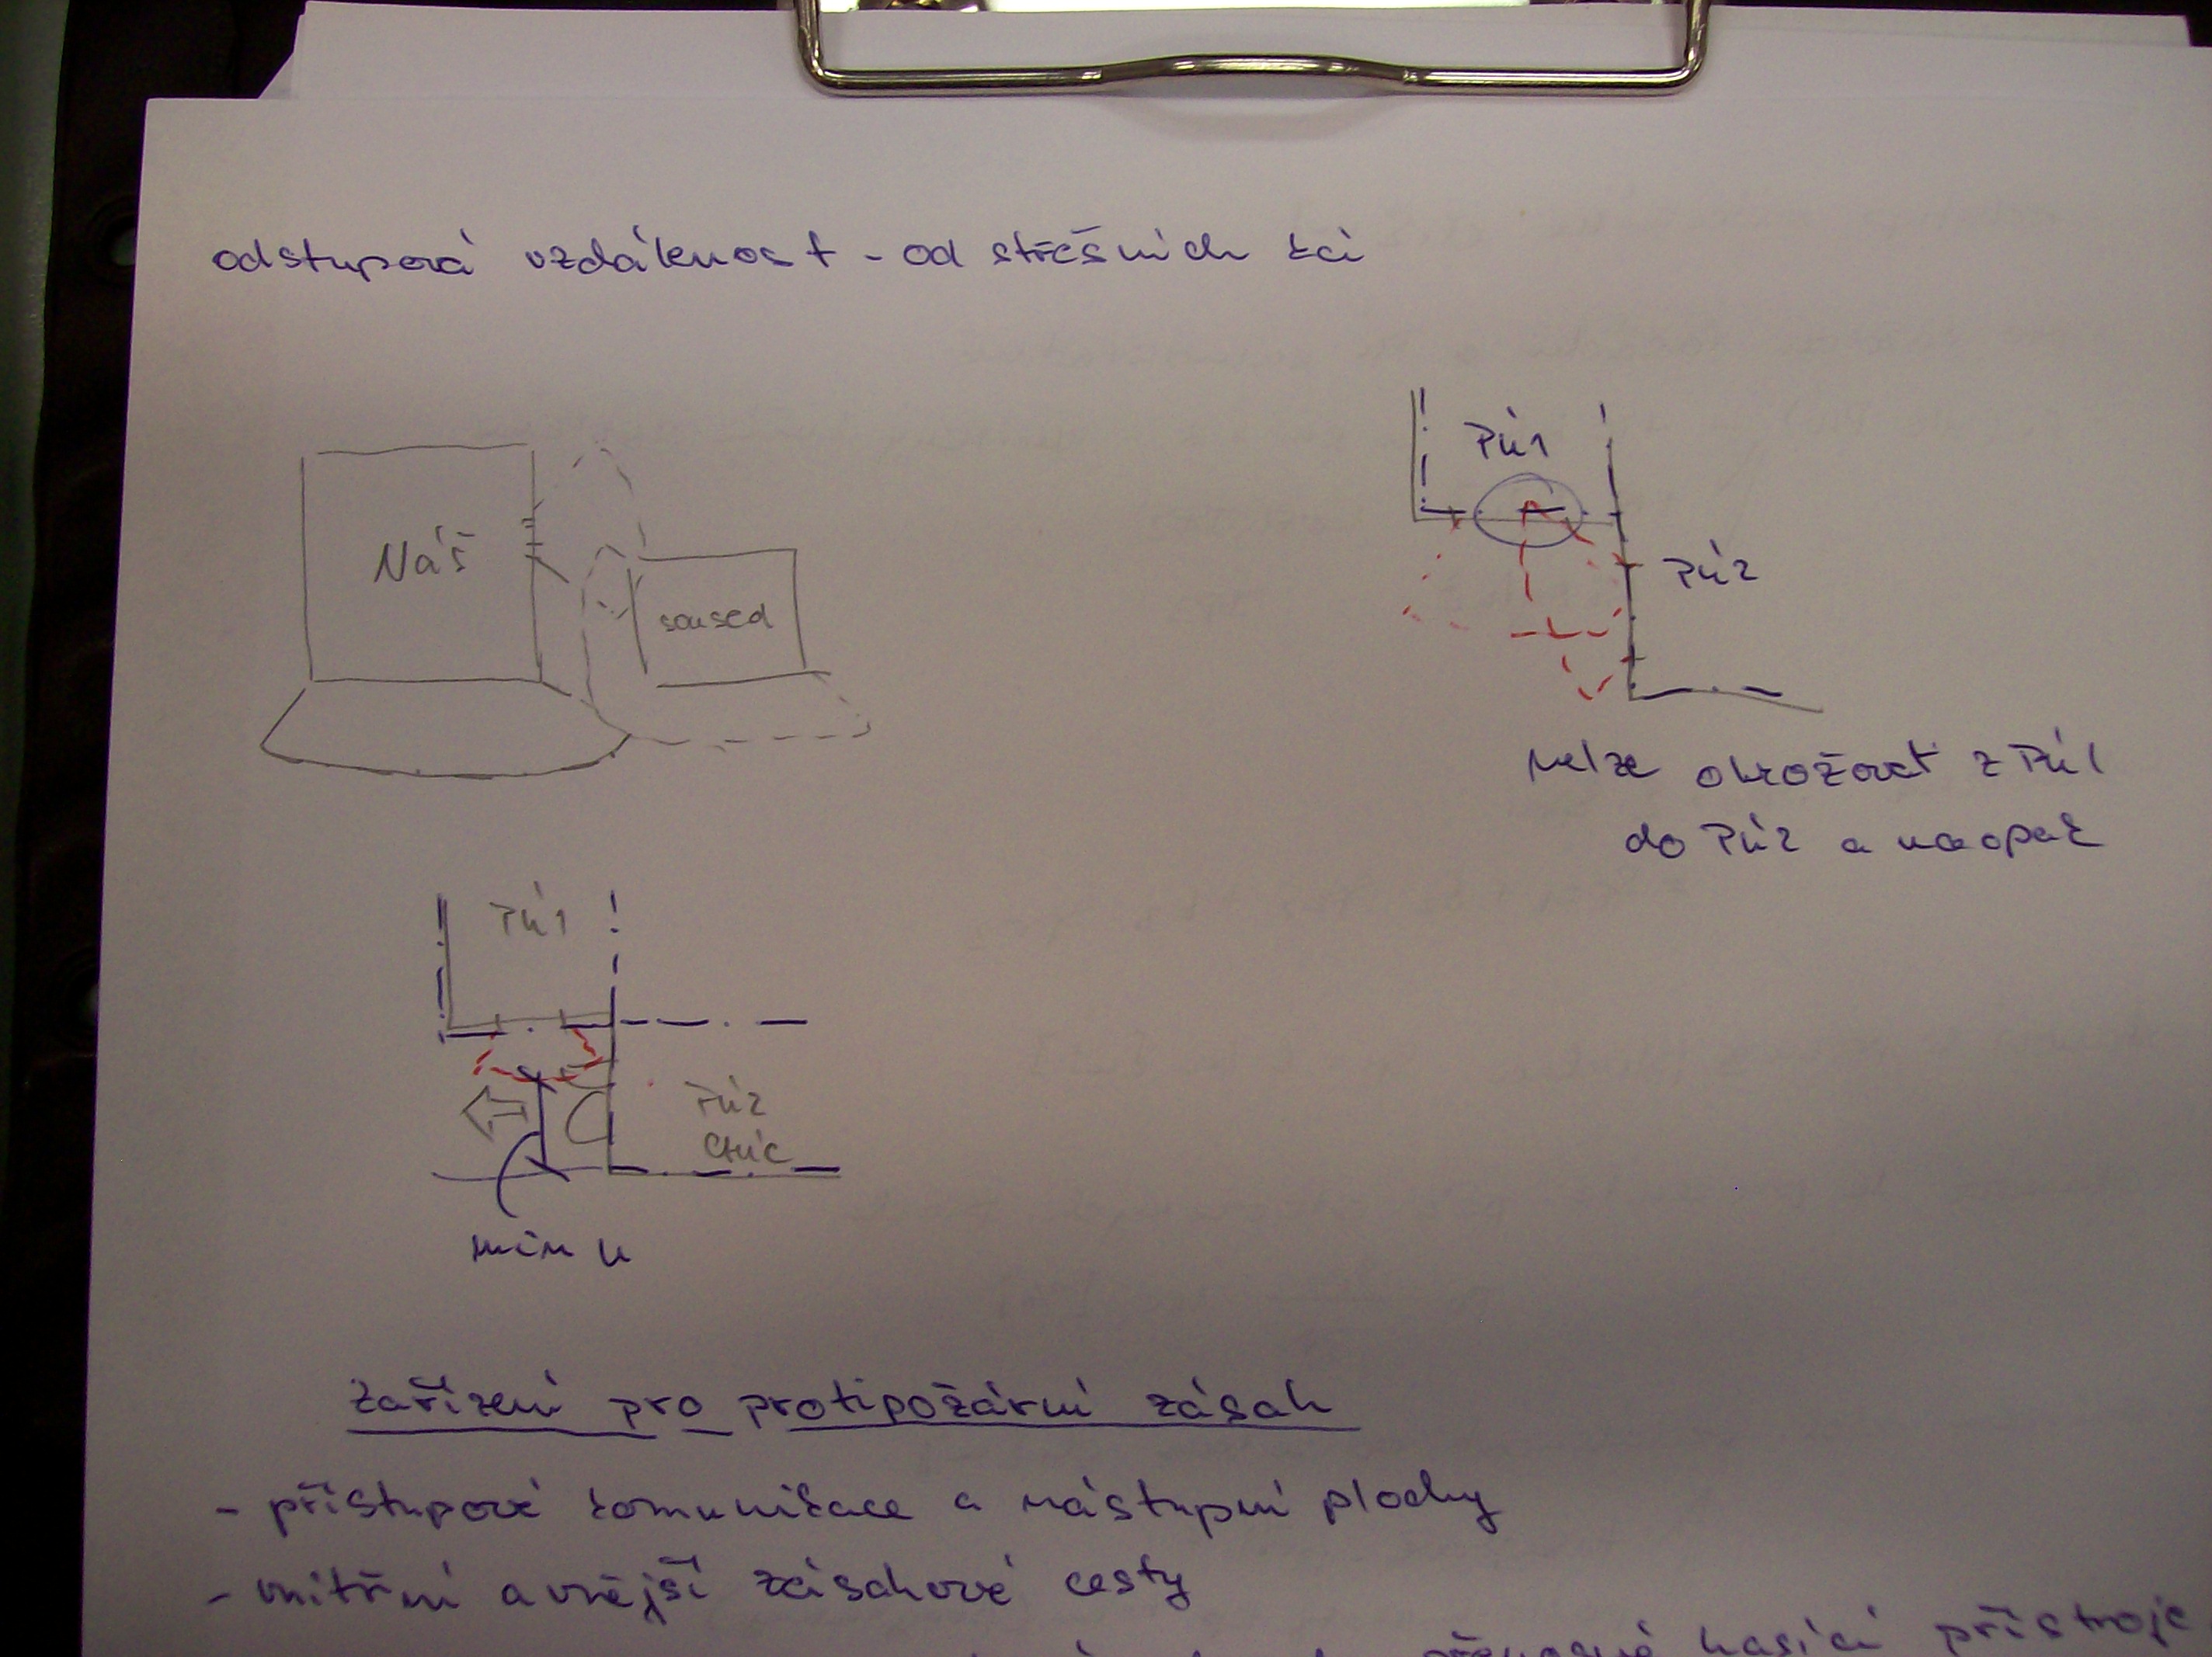 odstupová vzdálenost - od střešních kcí
PÚ1
Náš
PÚ2
soused
nelze ohrožovat z PÚ1
do PÚ2 a naopak
PÚ1
PÚ2
CHÚC
min u
Zařízení pro protipožární zásah
- přístupové komunikace a nástupní plochy
- vnitřní a vnější zásahové cesty
přenosné hasící přístroje